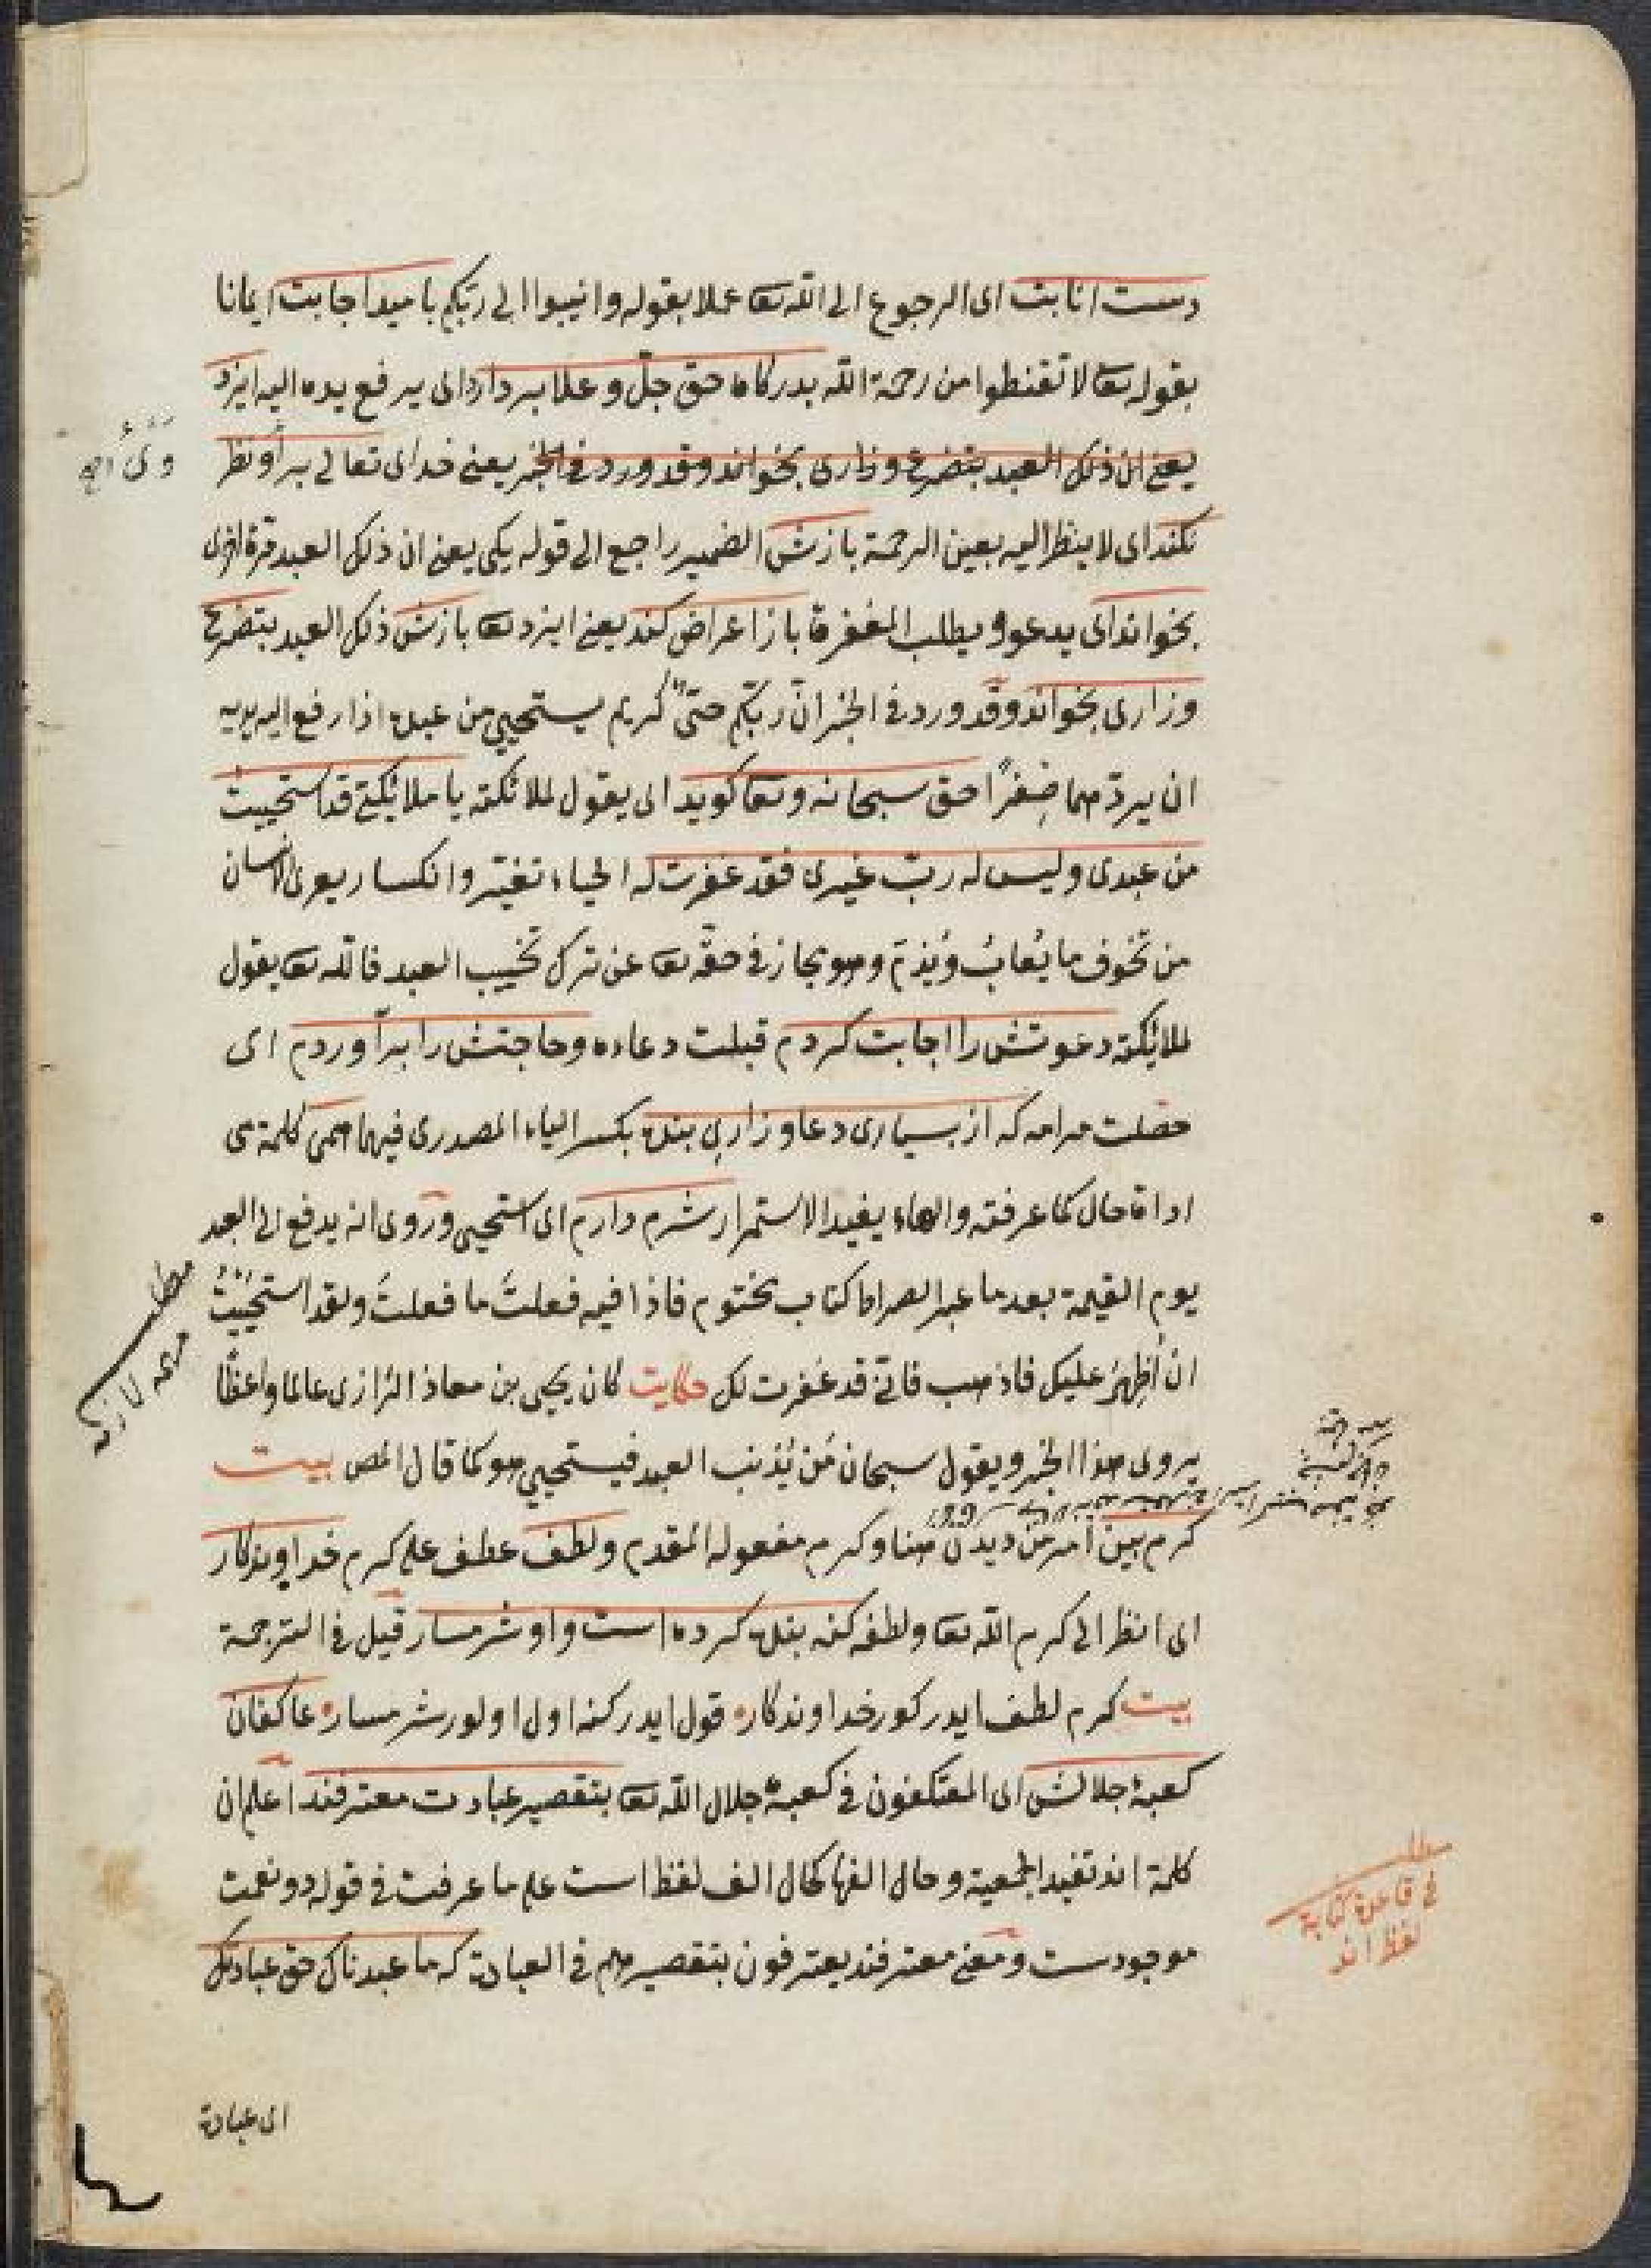 دست انابت اى الرجوع الى الله تعا عملا بقوله وانيبوا الى ربكم باميد اجابت ايمانا
بقوله تعا لا تقنطوا من رحمة الله بدركاه حق جل وعلا بردارد اى يرفع يده اليه ايزد
يعنى ان ذلك العبد بتضرع وزارى بخواند وقد ورد فى الخبر يعنى خداى تعالى براو نظر
نكند اى لا ينظر اليه بعين الرحمة بازش الضمير راجع الى قوله يكى يعنى ان ذلك العبد مرة اخرى
بخواند اى يدعو ويطلب المغفرة باز اعراض كند يعنى ايزد تعا بازش ذلك العبد بتضرع
وزارى بخواند وقد ورد فى الخبر ان ربّكم حىّ كريم يستحيي من عبده اذا رفع اليه يديه
ان يردّهما صِفرًا حق سبحانه وتعا كويد اى يقول للملائكة يا ملائكتى قد استحييت
من عبدى وليس له ربّ غيرى فقد غفرت له الحياء تغيّر وانكسار يعرى الانسان
من تخوف ما يُعابُ ويُذمّ وهو مجاز فى حقّه تعا عن ترك تخييب العبد فالله تعا يقول
للملائكة دعوتش را اجابت كردم قبلت دعاءه وحاجتش را برآوردم اى
حصّلت مرامه كه از بسيارى دعا وزارى بنده بكسر الياء المصدرى فيهما همى كلمة مى
اداة حال كما عرفته والهاء يفيد الاستمرار شرم دارم اى استحيى وروى انه يدفع الى العبد
يوم القيمة بعد ما عبر الصراط كتاب مختوم فاذا فيه فعلتَ ما فعلتَ ولقد استحييتُ
ان اُظهِرَ عليك فاذهب فانّى قد غفرت لك حكايت كان يحيى بن معاذ الرازى عالما واعظًا
يروى هذا الخبر ويقول سبحان مَن يُذنب العبد فيستحيي هو كما قال المص بيت
كرم بين امر من ديدن هنا وكرم مفعوله المقدم ولطف عطف على كرم خداوندكار
اى انظر الى كرم الله تعا ولطفه كنه بنده كرده است واو شرمسار قيل فى الترجمة
بيت كرم لطف ايدر كور خداوندكار قول ايدر كنه اول اولور شرمسار عاكفان
كعبۀ جلالش اى المعتكفون فى كعبة جلال الله تعا بتقصير عبادت معترفند اعلم ان
كلمة اند تفيد الجمعية وحال الفها كحال الف لفظ است على ما عرفت فى قوله دو نعمت
موجودست ومعنى معترفند يعترفون بتقصيرهم فى العبادة كه ما عبدناك حق عبادتك
اى عبادة
مطلب
فى قاعدة كتابة
لفظ اند